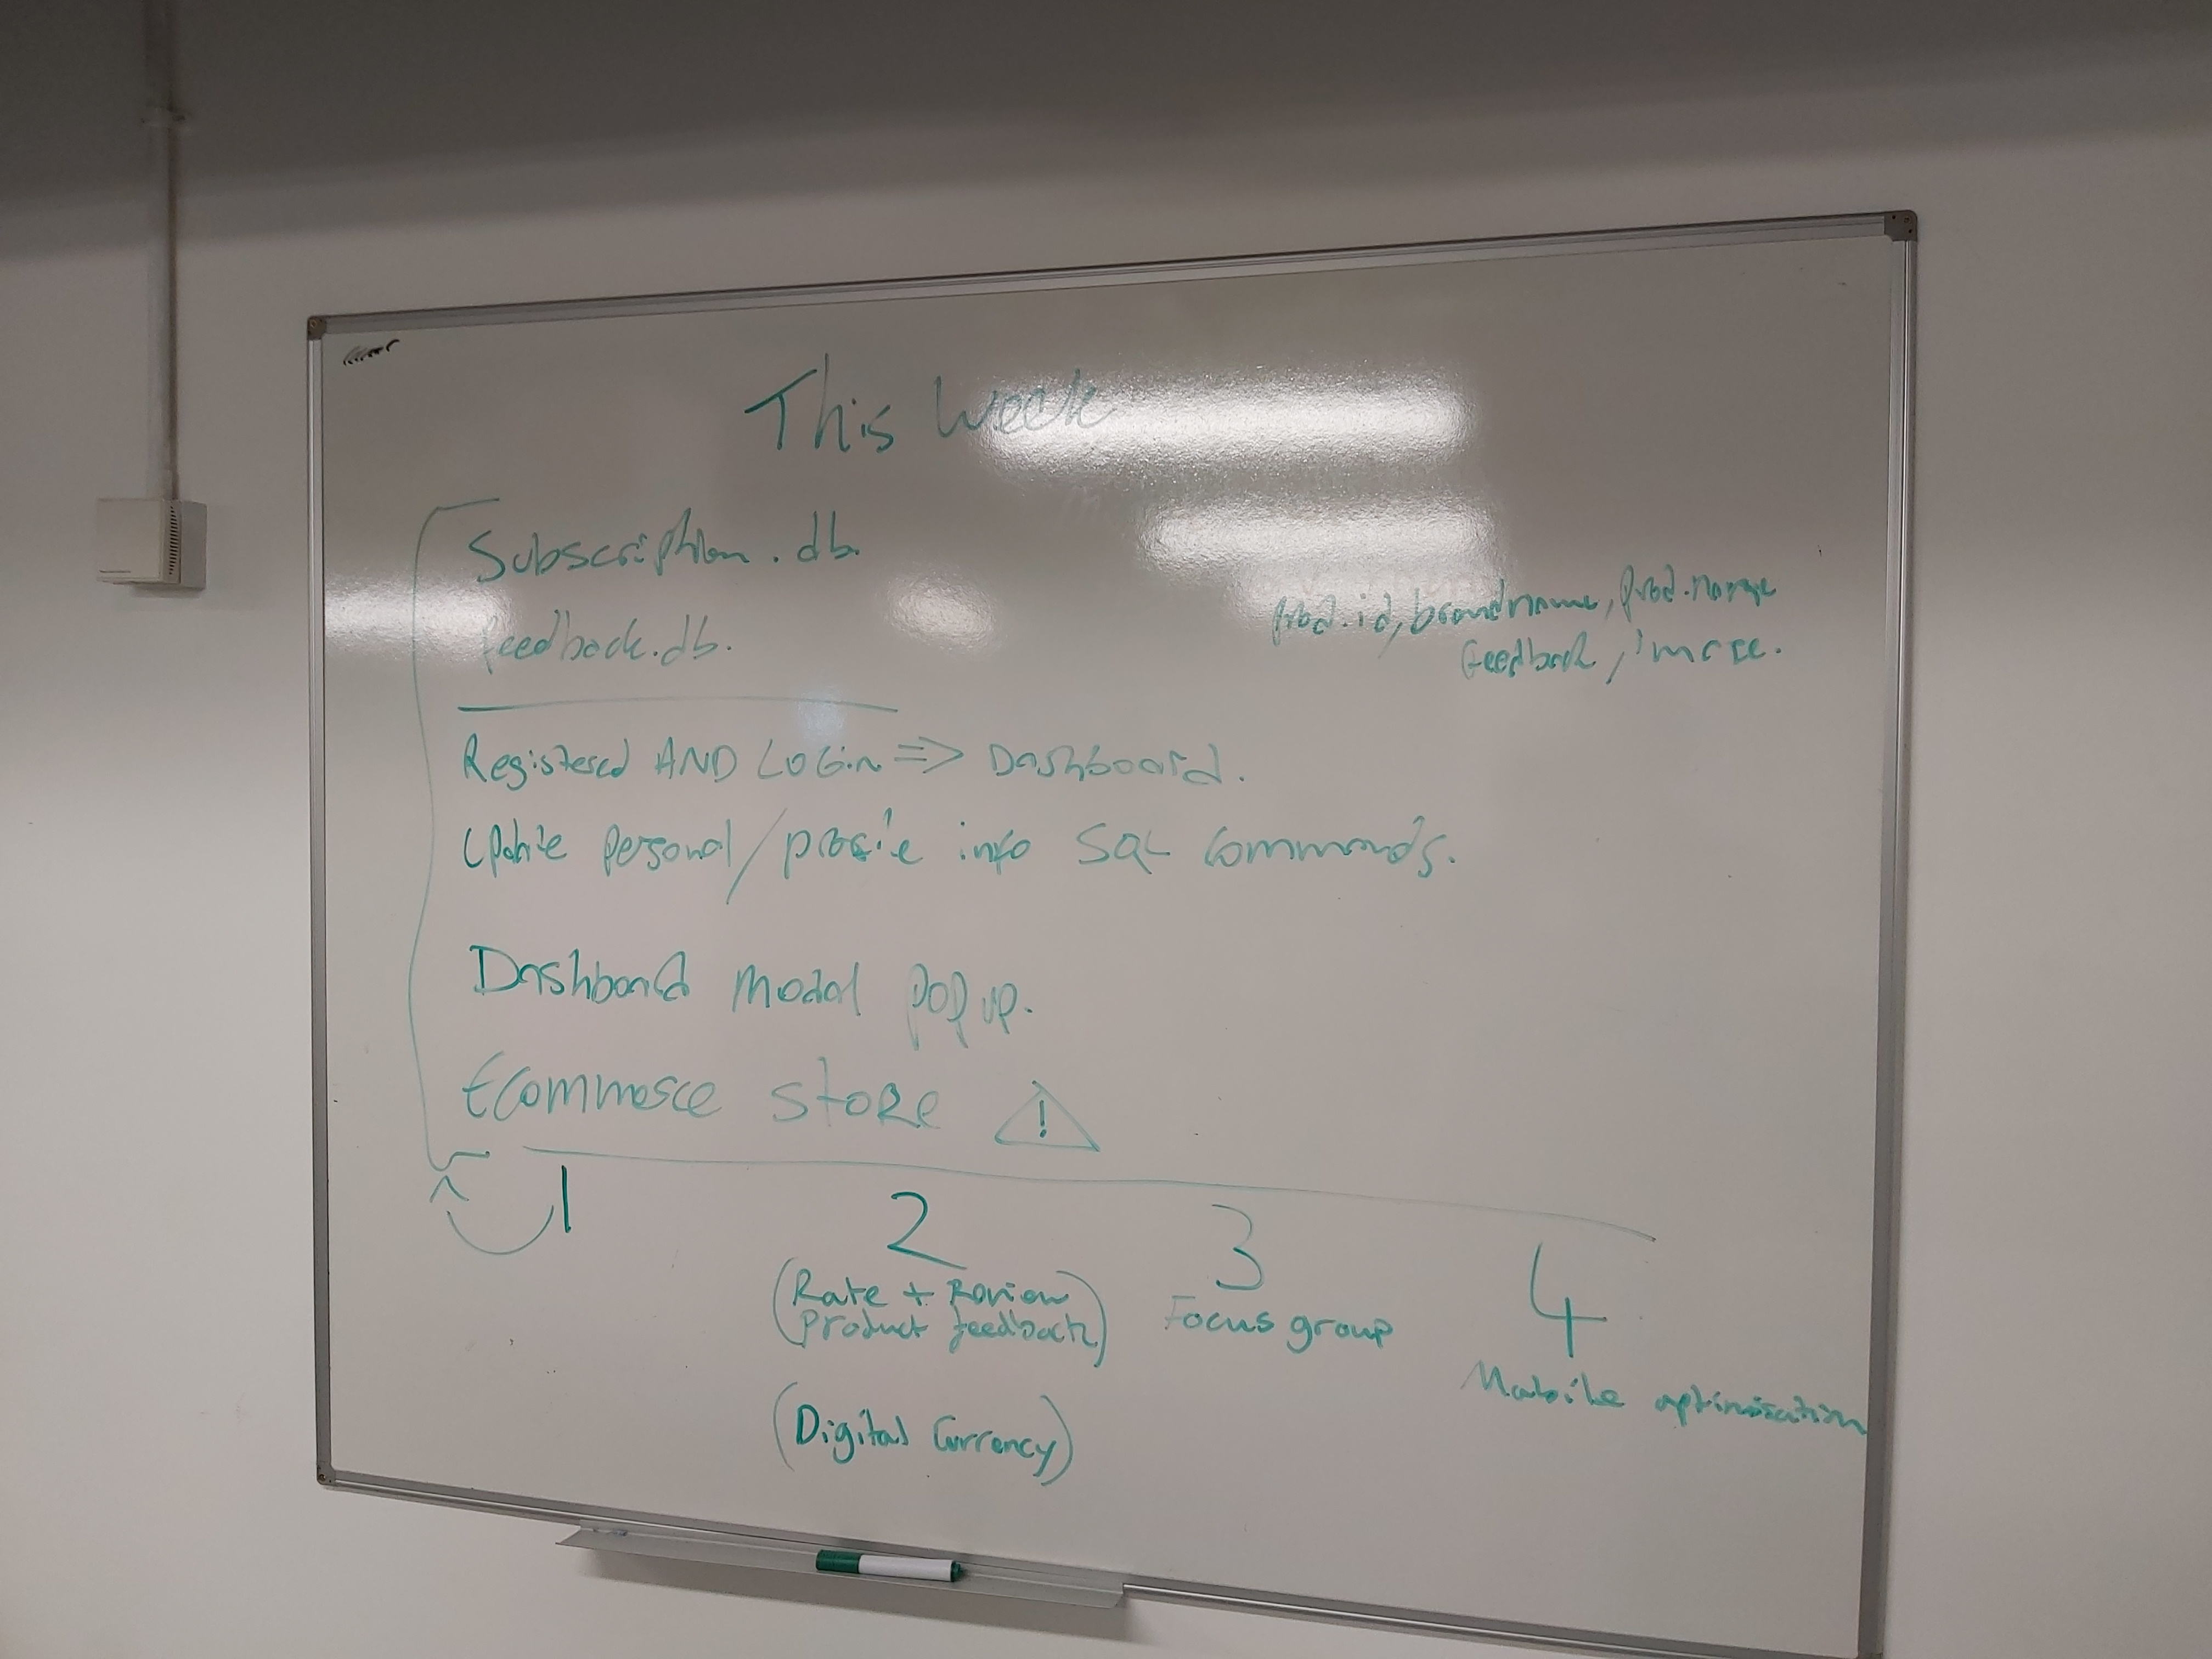 This Week
Subscription.db.
feedback.db.
prod.id, brandname, prod.name
feedback, 'more.
Registered AND LOGin => Dashboard.
Update personal/profile info SQL Commands.
Dashboard Modal Pop up.
Ecommerce store !
1 2 3 4
(Rate + Review
product feedback)
Focus group
Mobile optimisation
(Digital Currency)